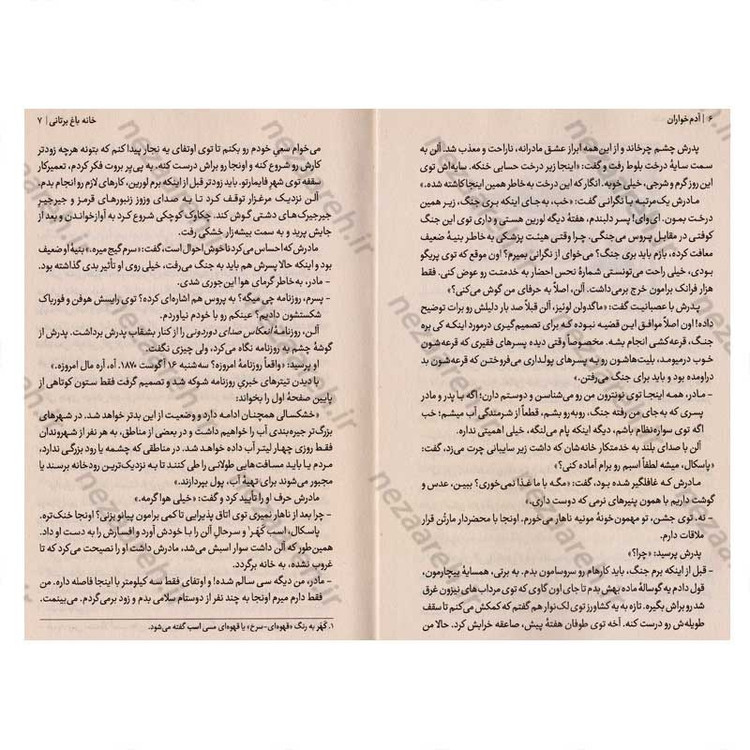 ۶ | آدم‌خواران
پدرش چشم چرخاند و از این همه ابراز عشق مادرانه، ناراحت و معذب شد. آلن به
سمت سایهٔ درخت بلوط رفت و گفت: «اینجا زیر درخت حسابی خنکه. سایه‌اش توی
این روز گرم و شرجی، خیلی خوبه. انگار که این درخت به خاطر همین اینجا کاشته شده.»
مادرش یک‌مرتبه با نگرانی گفت: «خب، به‌جای اینکه بری جنگ، زیر همین
درخت بمون. ای‌وای! پسر دلبندم، هفتهٔ دیگه لورین هستی و داری توی این جنگ
کوفتی در مقابل پروس می‌جنگی. چرا وقتی هیئت پزشکی به‌خاطر بنیهٔ ضعیف
معافت کرده، بازم باید بری جنگ؟ می‌خوای از نگرانی بمیرم؟ اون موقع که توی پریگو
بودی، خیلی راحت می‌تونستی شمارهٔ نحس احضار به خدمتت رو عوض کنی. فقط
هزار فرانک برامون خرج برمی‌داشت. آلن، اصلاً به حرفای من گوش می‌کنی؟»
پدرش با عصبانیت گفت: «ماگدولن لوئیز، آلن قبلاً صد بار دلیلش رو برات توضیح
داده! اون اصلاً موافق این قضیه نبوده که برای تصمیم‌گیری درمورد اینکه کی بره
جنگ، قرعه‌کشی انجام بشه. مخصوصاً وقتی دیده پسرهای فقیری که قرعه‌شون
خوب درمیومد، بلیت‌هاشون رو به پسرهای پولداری می‌فروختن که قرعه‌شون بد
دراومده بود و باید برای جنگ می‌رفتن.»
- مادر، همه اینجا توی نونترون من رو می‌شناسن و دوستم دارن؛ اگه با پدر و مادر
پسری که به‌جای من رفته جنگ، روبه‌رو بشم، قطعاً از شرمندگی آب میشم؛ خب
اگه توی سوارنظام باشم، دیگه اینکه پام می‌لنگه، خیلی اهمیتی نداره.
آلن با صدای بلند به خدمتکار خانه‌شان که داشت زیر سایبانی چرت می‌زد، گفت:
«پاسکال، میشه لطفاً اسبم رو برام آماده کنی؟»
مادرش که غافلگیر شده بود، گفت: «مگه با ما غذا نمی‌خوری؟ ببین، عدس و
گوشت داریم با همون پنیرهای نرمی که دوست داری.»
- نه. توی جشن، تو مهمون‌خونهٔ مونیه ناهار می‌خورم. اونجا با محضردار مارتُن قرار
ملاقات دارم.
پدرش پرسید: «چرا؟»
- قبل از اینکه برم جنگ، باید کارهام رو سروسامون بدم. به برتی، همسایهٔ بیچارمون،
قول دادم یه گوسالهٔ ماده بهش بدم تا جای اون گاوی که توی مرداب‌های نیزون غرق
شد رو براش بگیره. تازه به یه کشاورز توی لک‌نوار هم گفتم که کمکش می‌کنم تا سقف
طویله‌ش رو درست کنه. آخه توی طوفان هفتهٔ پیش، صاعقه خرابش کرد. حالا من
خانه باغ برتانی | ۷
می‌خوام سعی خودم رو بکنم تا توی اوتفای یه نجار پیدا کنم که بتونه هرچه زودتر
کارش رو شروع کنه و اونجا رو براش درست کنه. به پی‌یر بروت فکر کردم، تعمیرکار
سقفه توی شهر فایمارتو. باید زودتر قبل از اینکه برم لورین، کارهای لازم رو انجام بدم.
آلن نزدیک مرغزار توقف کرد تا به صدای وزوز زنبورهای قرمز و جیرجیر
جیرجیرک‌های دشتی گوش کند. چکاوک کوچکی شروع کرد به آوازخواندن و بعد از
جایش پرید و به سمت بیشه‌زار خشکی رفت.
مادرش که احساس می‌کرد ناخوش‌احوال است، گفت: «سرم گیج میره.» بنیهٔ او ضعیف
بود و اینکه حالا پسرش هم باید به جنگ می‌رفت، خیلی روی او تأثیر بدی گذاشته بود.
- مادر، به‌خاطر گرمای هوا این‌جوری شدی.
- پسرم، روزنامه چی میگه؟ به پروس هم اشاره‌ای کرده؟ توی رایسش هوفن و فورباک
شکستشون دادیم؟ عینکم رو با خودم نیاوردم.
آلن، روزنامهٔ انعکاس صدای دوردونی را از کنار بشقاب پدرش برداشت. پدرش از
گوشهٔ چشم به روزنامه نگاه می‌کرد، ولی چیزی نگفت.
او پرسید: «واقعاً روزنامهٔ امروزه؟ سه‌شنبه ۱۶ آگوست ۱۸۷۰. آه، آره مال امروزه.»
با دیدن تیترهای خبری روزنامه شوکه شد و تصمیم گرفت فقط ستون کوتاهی از
پایین صفحهٔ اول را بخواند:
«خشکسالی همچنان ادامه دارد و وضعیت از این بدتر خواهد شد. در شهرهای
بزرگ‌تر جیره‌بندی آب را خواهیم داشت و در بعضی از مناطق، به هر نفر از شهروندان
فقط روزی چهار لیتر آب داده خواهد شد. در مناطقی که چشمه یا رود بزرگی ندارد،
مردم یا باید مسافت‌هایی طولانی را طی کنند تا به نزدیک‌ترین رودخانه برسند یا
مجبور می‌شوند برای تهیهٔ آب، پول بپردازند.»
مادرش حرف او را تأیید کرد و گفت: «خیلی هوا گرمه.»
- چرا بعد از ناهار نمیری توی اتاق پذیرایی تا کمی برامون پیانو بزنی؟ اونجا خنک‌تره.
پاسکال، اسب کَهَر¹ و سرحال آلن را با خودش آورد و افسارش را به دست او داد.
همین‌طور که آلن داشت سوار اسبش می‌شد، مادرش داشت او را نصیحت می‌کرد که تا
غروب نشده، به خانه برگردد.
- مادر، من دیگه سی سالم شده! و اوتفای فقط سه کیلومتر با اینجا فاصله داره. من
فقط دارم میرم اونجا به چند نفر از دوستام سلامی بدم و زود برمی‌گردم. می‌بینمت.
۱. کَهَر به رنگ «قهوه‌ای-سرخ» یا قهوه‌ای مسی اسب گفته می‌شود.
nezaareh.ir